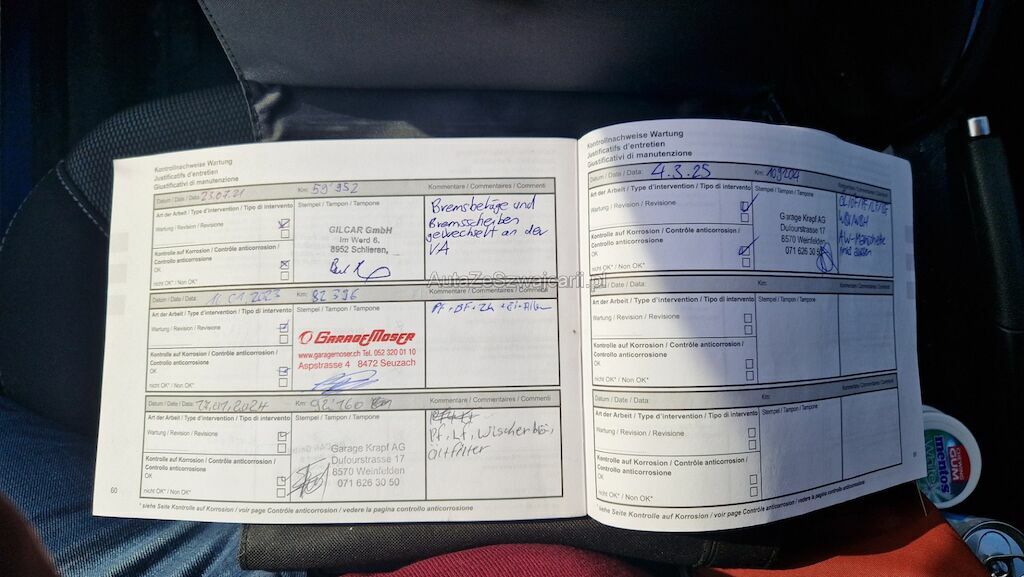 Kontrollnachweise Wartung
Justificatifs d'entretien
Giustificativi di manutenzione
Datum / Date / Data: 23.07.21 Km: 59'952 Kommentare / Commentaires / Commenti
Art der Arbeit / Type d'intervention / Tipo di intervento Stempel / Tampon / Tampone
Wartung / Revision / Revisione
Kontrolle auf Korrosion / Contrôle anticorrosion /
Controllo anticorrosione
OK
nicht OK* / Non OK*
GILCAR GmbH
Im Werd 6,
8952 Schlieren,
Bremsbeläge und
Bremsscheiben
gewechselt an der
VA
Datum / Date / Data: 11.01.2023 Km: 82396 Kommentare / Commentaires / Commenti
Art der Arbeit / Type d'intervention / Tipo di intervento Stempel / Tampon / Tampone
Wartung / Revision / Revisione
Kontrolle auf Korrosion / Contrôle anticorrosion /
Controllo anticorrosione
OK
nicht OK* / Non OK*
GARAGEMOSER
www.garagemoser.ch Tel. 052 320 01 10
Aspstrasse 4 8472 Seuzach
Datum / Date / Data: 17.01.2024 Km: 92'160 Km Kommentare / Commentaires / Commenti
Art der Arbeit / Type d'intervention / Tipo di intervento Stempel / Tampon / Tampone
Wartung / Revision / Revisione
Kontrolle auf Korrosion / Contrôle anticorrosion /
Controllo anticorrosione
OK
nicht OK* / Non OK*
Garage Krapf AG
Dufourstrasse 17
8570 Weinfelden
071 626 30 50
Pf, Lf, Wischer
Ölfilter
60
* siehe Seite Kontrolle auf Korrosion / voir page Contrôle anticorrosion / vedere la pagina controllo anticorrosione
Kontrollnachweise Wartung
Justificatifs d'entretien
Giustificativi di manutenzione
Datum / Date / Data: 4.3.25 Km: Kommentare / Commentaires / Commenti
Art der Arbeit / Type d'intervention / Tipo di intervento Stempel / Tampon / Tampone
Wartung / Revision / Revisione
Kontrolle auf Korrosion / Contrôle anticorrosion /
Controllo anticorrosione
OK
nicht OK* / Non OK*
Garage Krapf AG
Dufourstrasse 17
8570 Weinfelden
071 626 30 50
Datum / Date / Data: Km: Kommentare / Commentaires / Commenti
Art der Arbeit / Type d'intervention / Tipo di intervento Stempel / Tampon / Tampone
Wartung / Revision / Revisione
Kontrolle auf Korrosion / Contrôle anticorrosion /
Controllo anticorrosione
OK
nicht OK* / Non OK*
Datum / Date / Data: Km: Kommentare / Commentaires / Commenti
Art der Arbeit / Type d'intervention / Tipo di intervento Stempel / Tampon / Tampone
Wartung / Revision / Revisione
Kontrolle auf Korrosion / Contrôle anticorrosion /
Controllo anticorrosione
OK
nicht OK* / Non OK*
* siehe Seite Kontrolle auf Korrosion / voir page Contrôle anticorrosion / vedere la pagina controllo anticorrosione
AutaZeSzwajcarii.pl
CHEWING
GUM
mentos
White